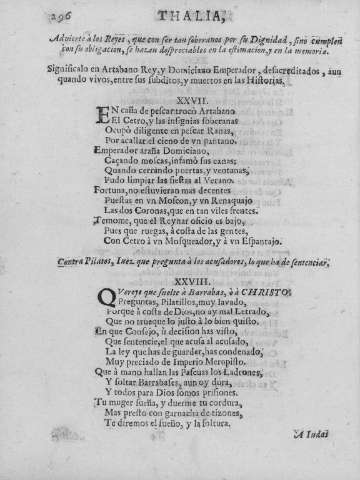 296
THALIA,
Advierte à los Reyes, que con ser tan soberanos por su Dignidad, sino cumplen
con su obligacion, se hazen despreciables en la estimacion, y en la memoria.
Significalo en Artabano Rey, y Domiciano Emperador, desacreditados, aun
quando vivos, entre sus subditos, y muertos en las Historias.
XXVII.
EN caña de pescar trocò Artabano
El Cetro, y las insignias soberanas
Ocupò diligente en pescar Ranas,
Por acallar el cieno de vn pantano.
Emperador araña Domiciano,
Caçando moscas, infamò sus canas;
Quando cerrando puertas, y ventanas,
Pudo limpiar las siestas al Verano.
Fortuna, no estuvieran mas decentes
Puestas en vn Moscon, y vn Renaquajo
Las dos Coronas, que en tan viles frentes.
Temome, que el Reynar oficio es bajo,
Pues que ruegas, à costa de las gentes,
Con Cetro à vn Mosqueador, y à vn Espantajo.
Contra Pilatos, Iuez que pregunta à los acusadores, lo que ha de sentenciar.
XXVIII.
QVereys que suelte à Barrabas, ò à CHRISTO:
Preguntas, Pilatillos, muy lavado,
Porque à costa de Dios, no ay mal Letrado,
Que no trueque lo justo à lo bien quisto.
En que Consejo, ù decision has visto,
Que sentencie, el que acusa al acusado,
La ley que has de guardar, has condenado,
Muy preciado de Imperio Meropisto.
Que à mano hallan las Pascuas los Ladrones,
Y soltar Barrabases, aun oy dura,
Y todos para Dios somos prisiones.
Tu muger sueña, y duerme tu cordura,
Mas presto con garnacha de tizones,
Te diremos el sueño, y la soltura.
A Iudas